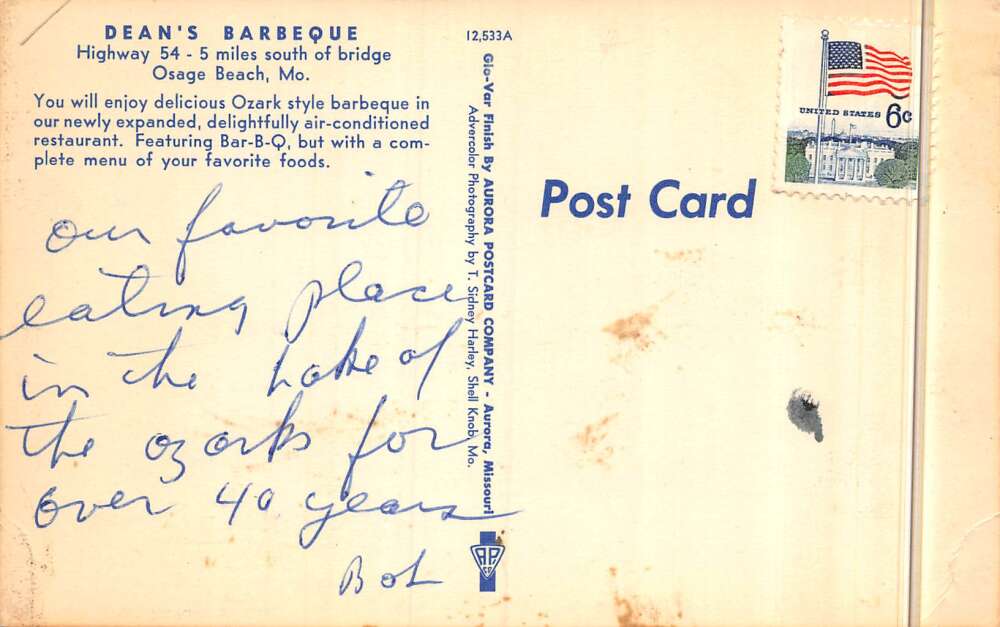 DEAN'S BARBEQUE
Highway 54 - 5 miles south of bridge
Osage Beach, Mo.
You will enjoy delicious Ozark style barbeque in
our newly expanded, delightfully air-conditioned
restaurant. Featuring Bar-B-Q, but with a com-
plete menu of your favorite foods.
our favorite
eating place
in the Lake of
the ozarks for
over 40 years
Bob
12,533A
Glo-Var Finish By AURORA POSTCARD COMPANY - Aurora, Missouri
Advercolor Photography by T. Sidney Harley, Shell Knob, Mo.
A.P.
CO
Post Card
UNITED STATES 6c